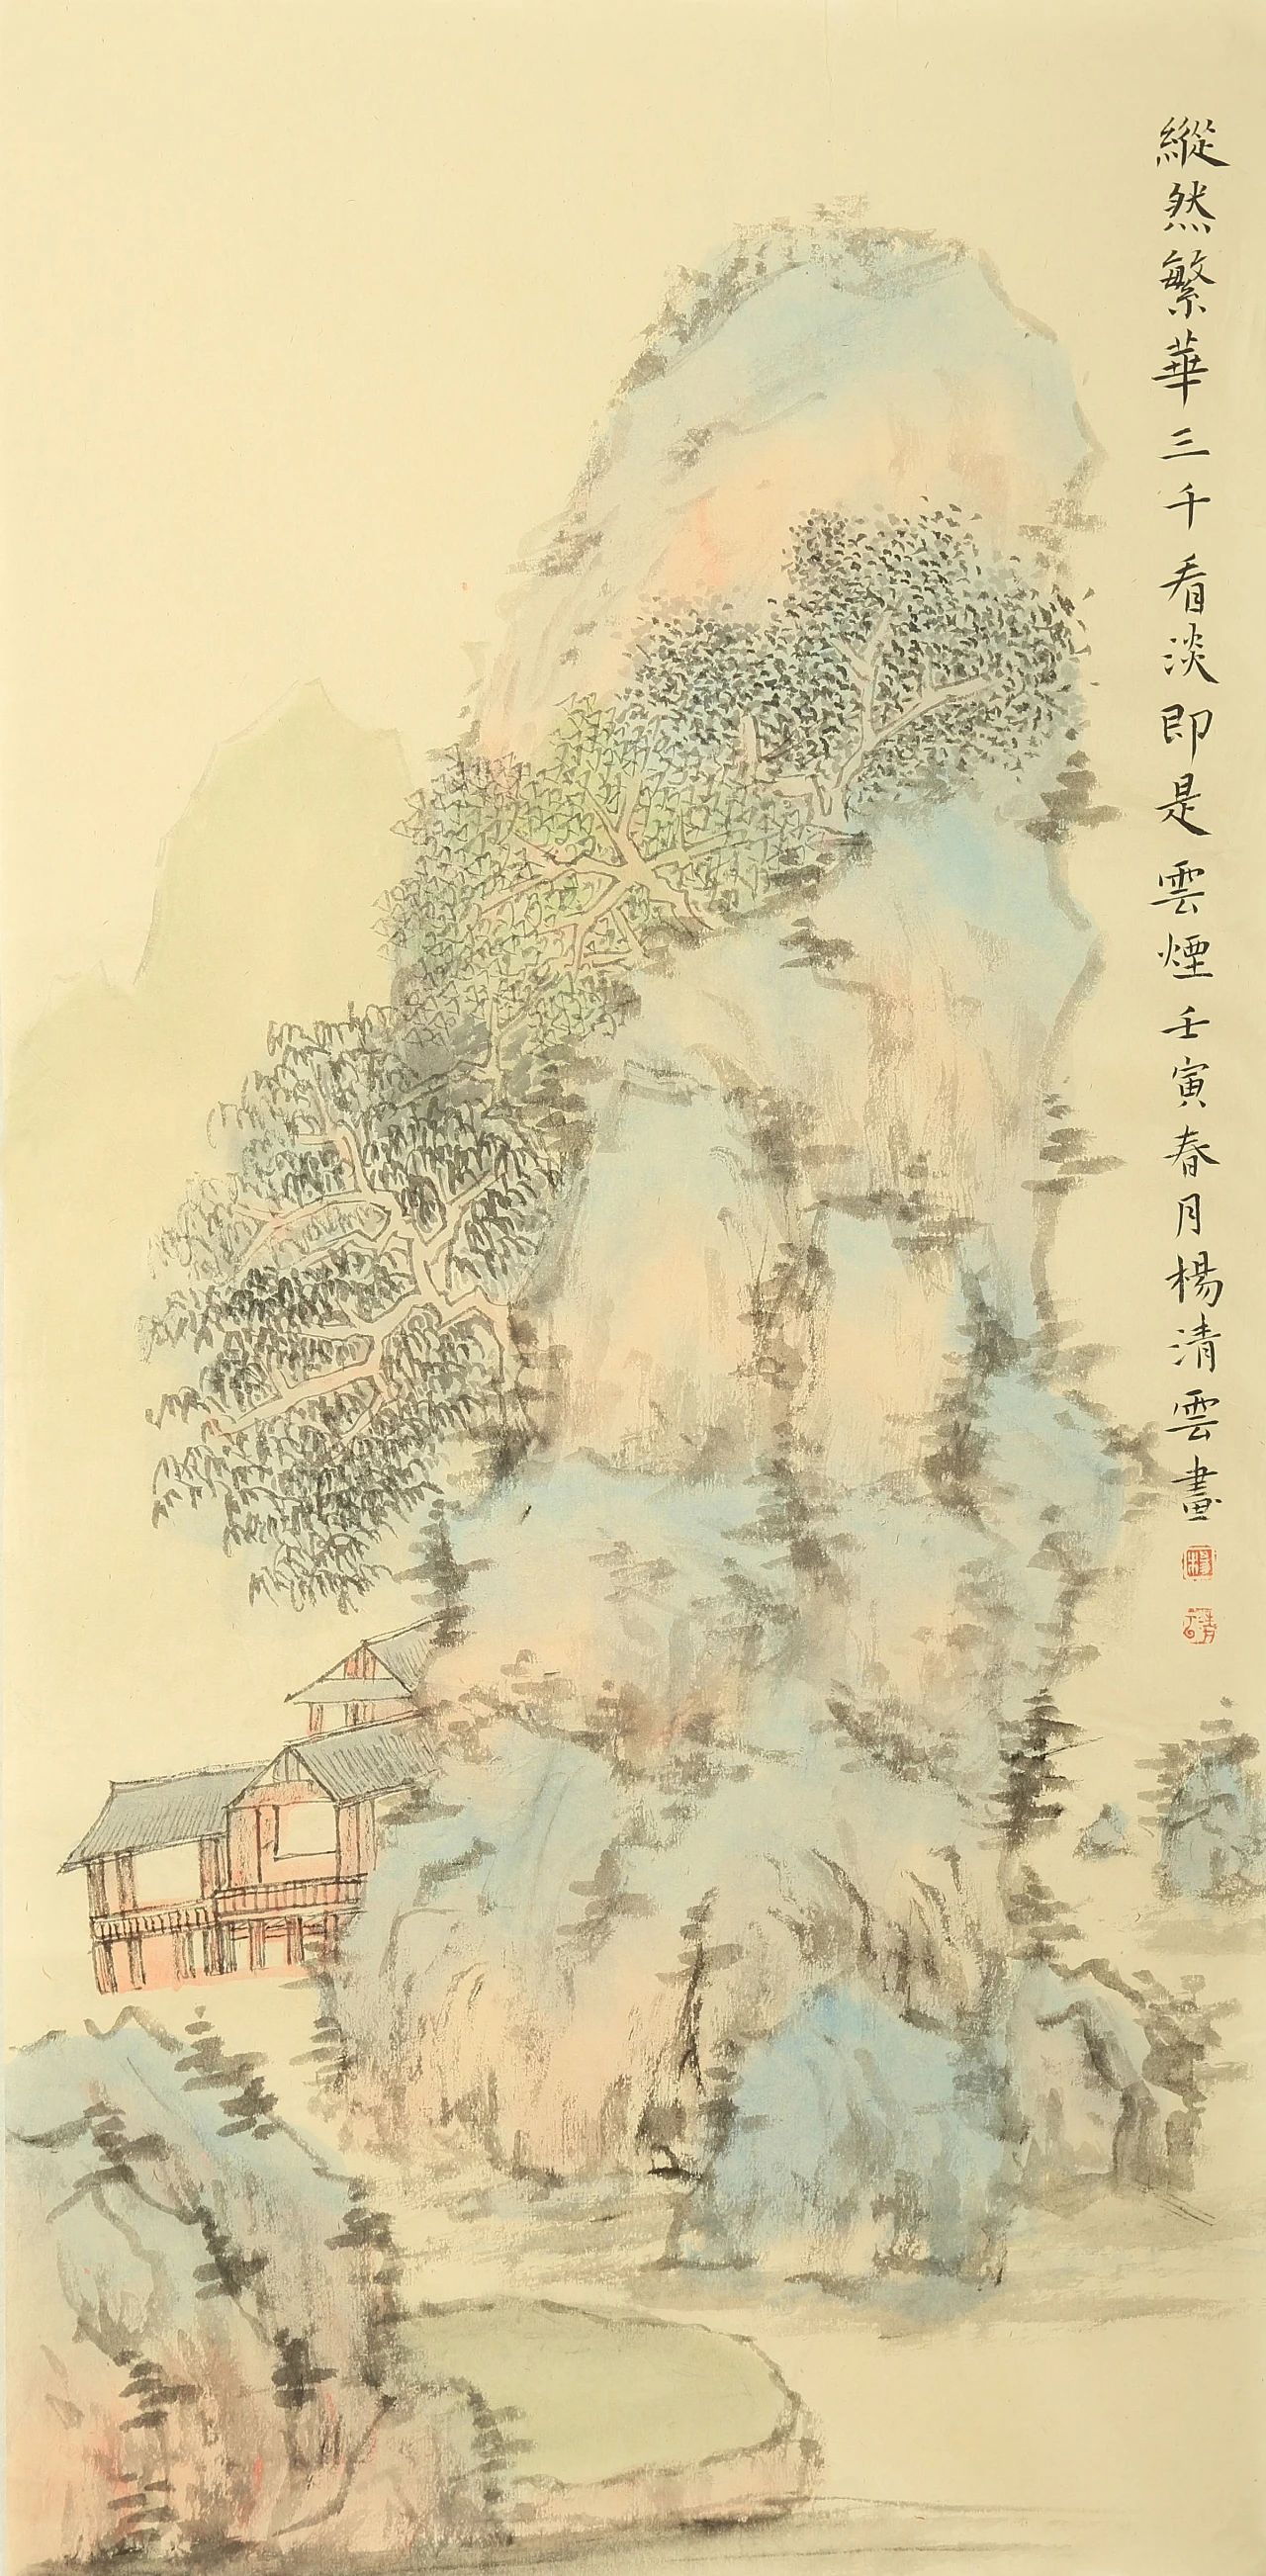 縱然繁華三千看淡即是雲煙壬寅春月楊清雲畫
楊
清